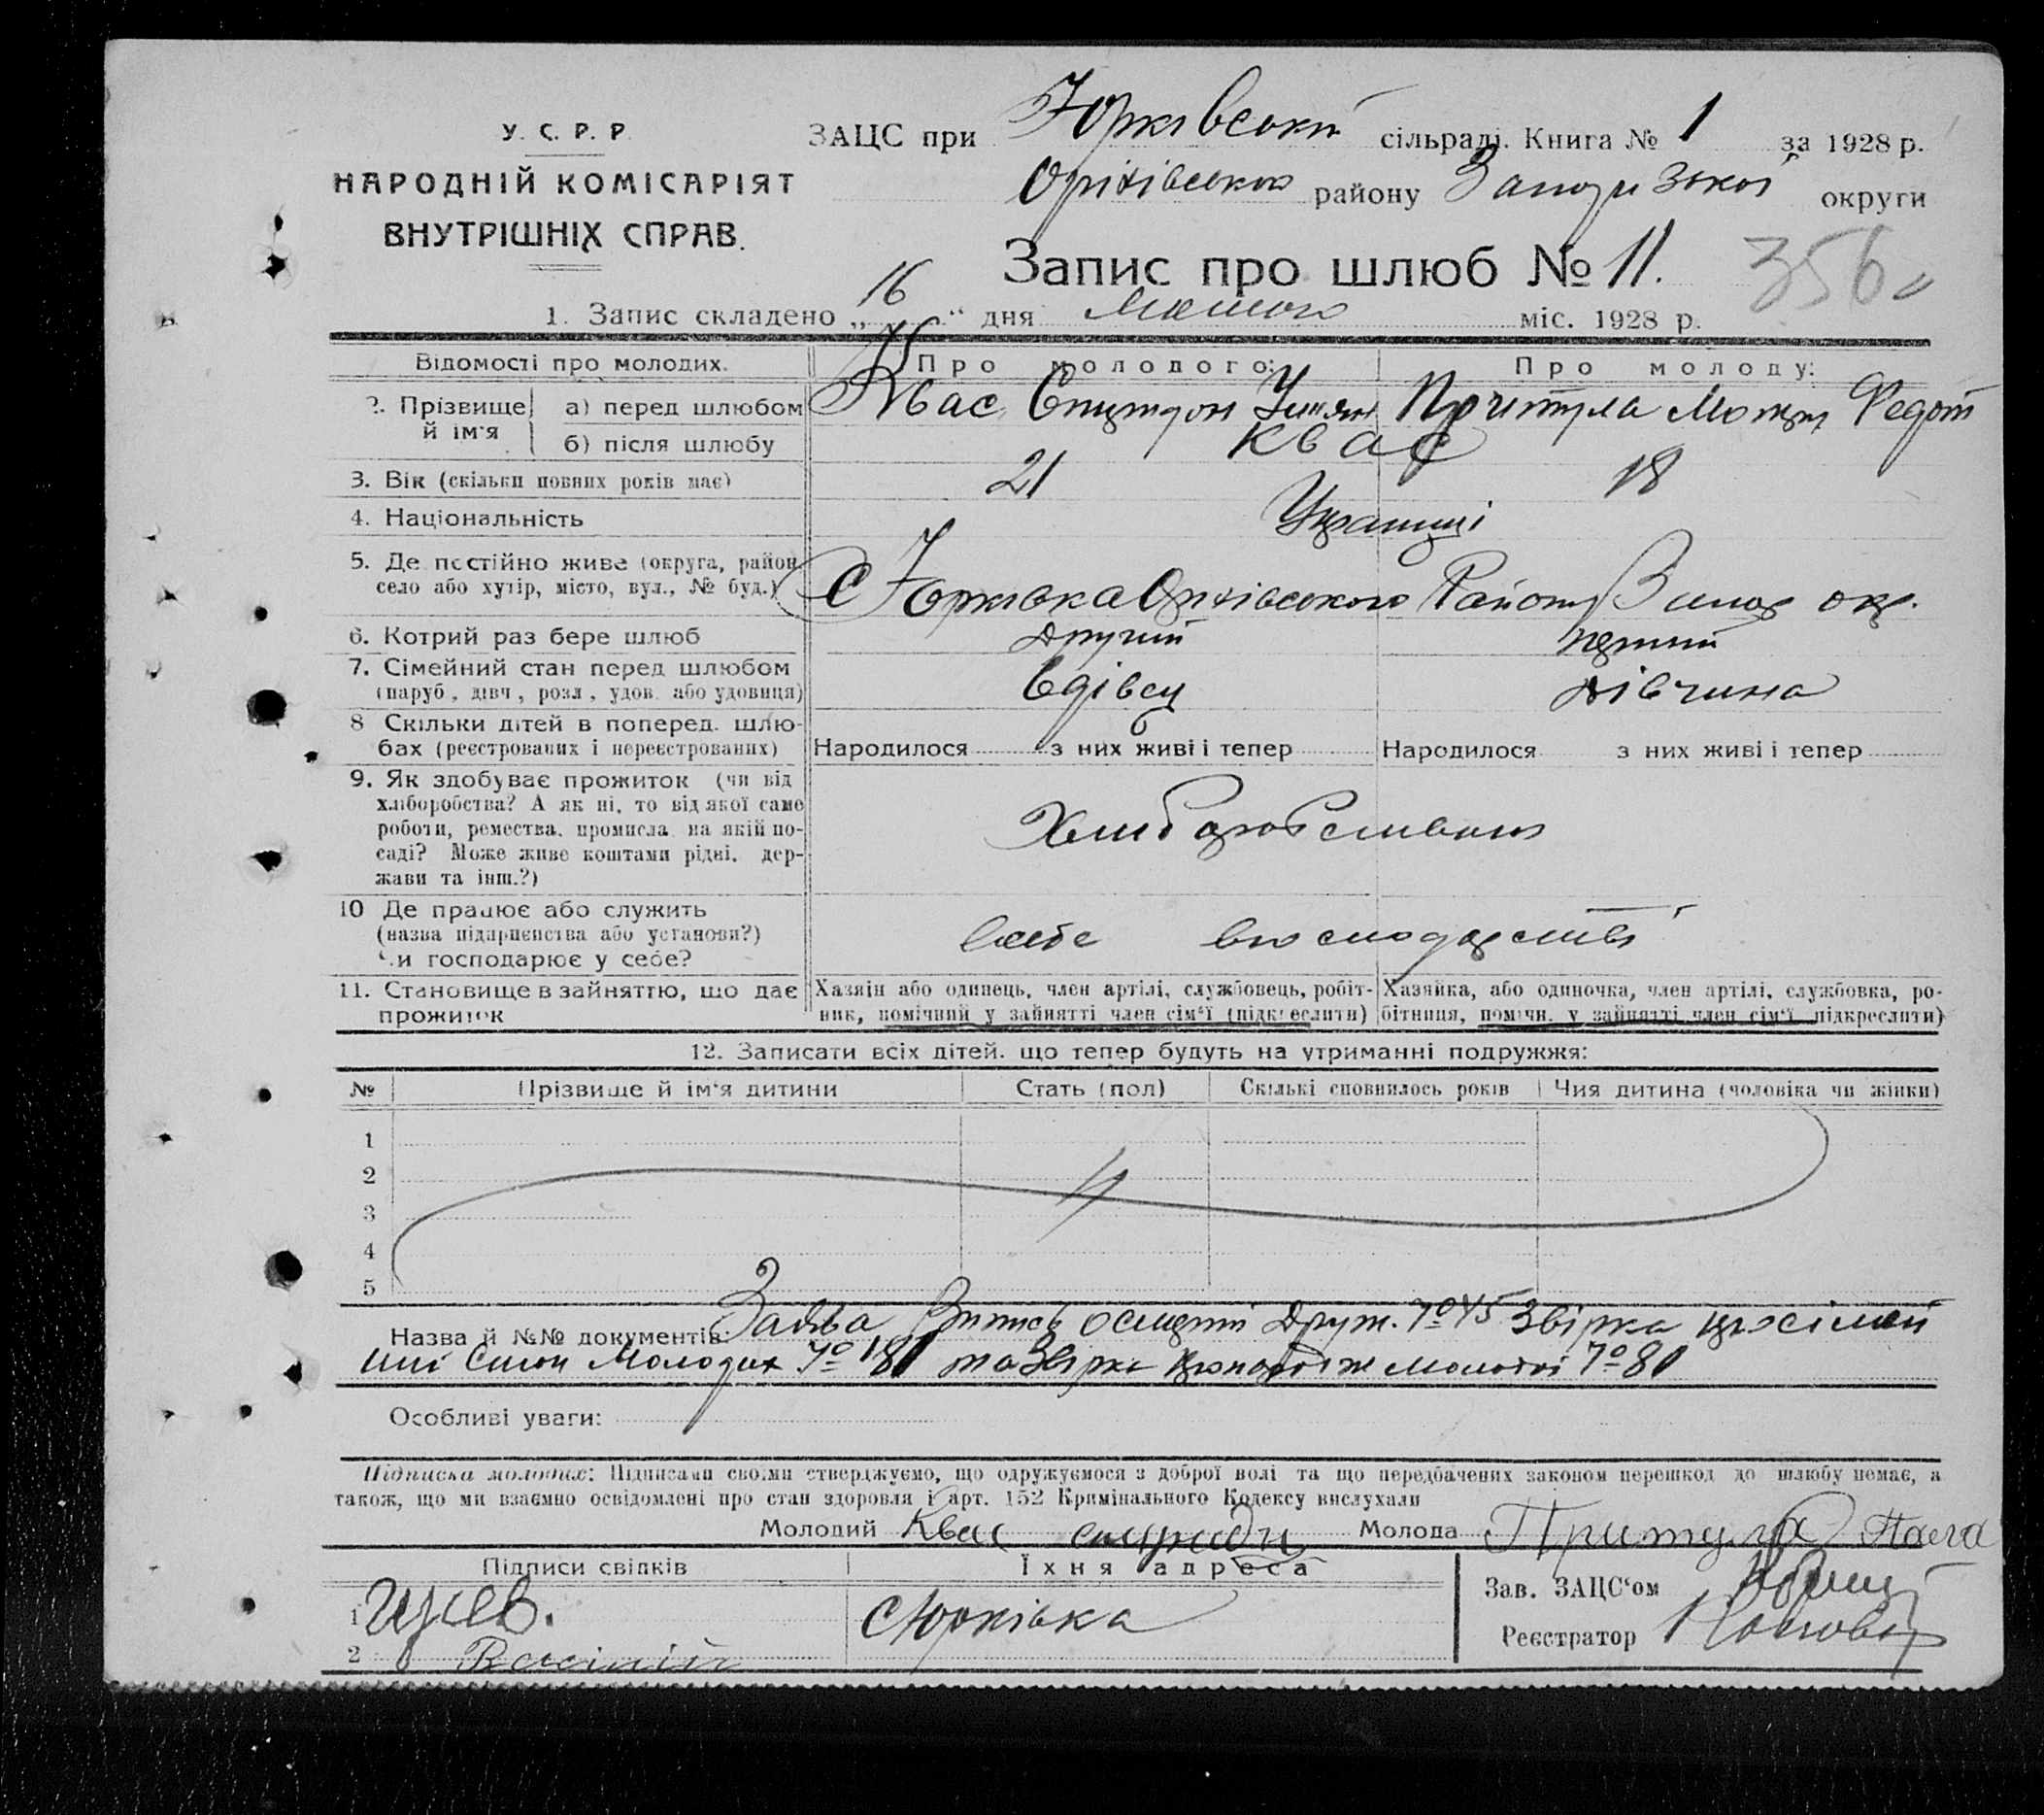 У. С. Р. Р.
НАРОДНІЙ КОМІСАРІЯТ
ВНУТРІШНІХ СПРАВ.
ЗАЦС при Юрківській сільраді. Книга № 1 за 1928 р.
Оріхівського району Запорізької округи
Запис про шлюб № 11.
356
1. Запис складено „16“ дня лютого міс. 1928 р.
Відомості про молодих. Про молодого: Про молоду:
2. Прізвище й ім'я а) перед шлюбом Квас Притула Федот
б) після шлюбу Квас
3. Вік (скільки повних років має) 21 18
4. Національність Українці
5. Де постійно живе (округа, район,
село або хутір, місто, вул., № буд.) С Юрківка Оріхівського Району Запор окр.
6. Котрий раз бере шлюб Другий перший
7. Сімейний стан перед шлюбом
(паруб., дівч., розл., удов. або удовиця) Вдівец дівчина
8 Скільки дітей в поперед. шлю-
бах (реєстрованих і нереєстрованих) Народилося з них живі і тепер Народилося з них живі і тепер
9. Як здобуває прожиток (чи від
хліборобства? А як ні, то від якої саме
роботи, ремества, промисла, на якій по-
саді? Може живе коштами рідні, дер-
жави та інш.?)
Хлиборобством
10 Де працює або служить
(назва підприємства або установи?)
Чи господарює у себе?
в себе в господарстві
11. Становище в зайняттю, що дає
прожиток
Хазяїн або одинець, член артілі, службовець, робіт-
ник, помічний у зайнятті член сім'ї (підкреслити)
Хазяйка, або одиночка, член артілі, службовка, ро-
бітниця, помічн. у зайнятті член сім'ї підкреслити)
12. Записати всіх дітей, що тепер будуть на утриманні подружжя:
№ Прізвище й ім'я дитини Стать (пол) Скількі сповнилось років Чия дитина (чоловіка чи жінки)
1
2
3
4
5
Назва й №№ документів: Заява Дрyж. № 45 Звірка про сімей
ний Стан Молодих № 181 та Звірка про молодої № 80
Особливі уваги:
Підписка молодих: Підписами своїми стверджуємо, що одружуємося з доброї волі та що передбачених законом перешкод до шлюбу немає, а
також, що ми взаємно освідомлені про стан здоровля і арт. 152 Кримінального Кодексу вислухали
Молодий Квас Молода Притула
Підписи свідків Їхня адреса
Зав. ЗАЦС'ом
1 с Юрківка
Реєстратор
2